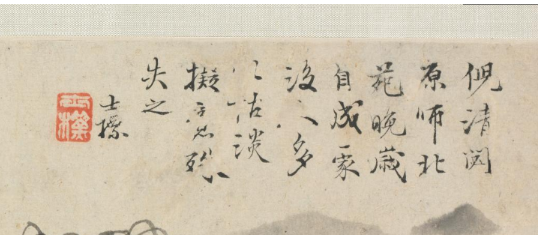 倪清閟
原師北
苑晚歲
自成家
後人多
以枯淡
擬之
失之
士標
士標